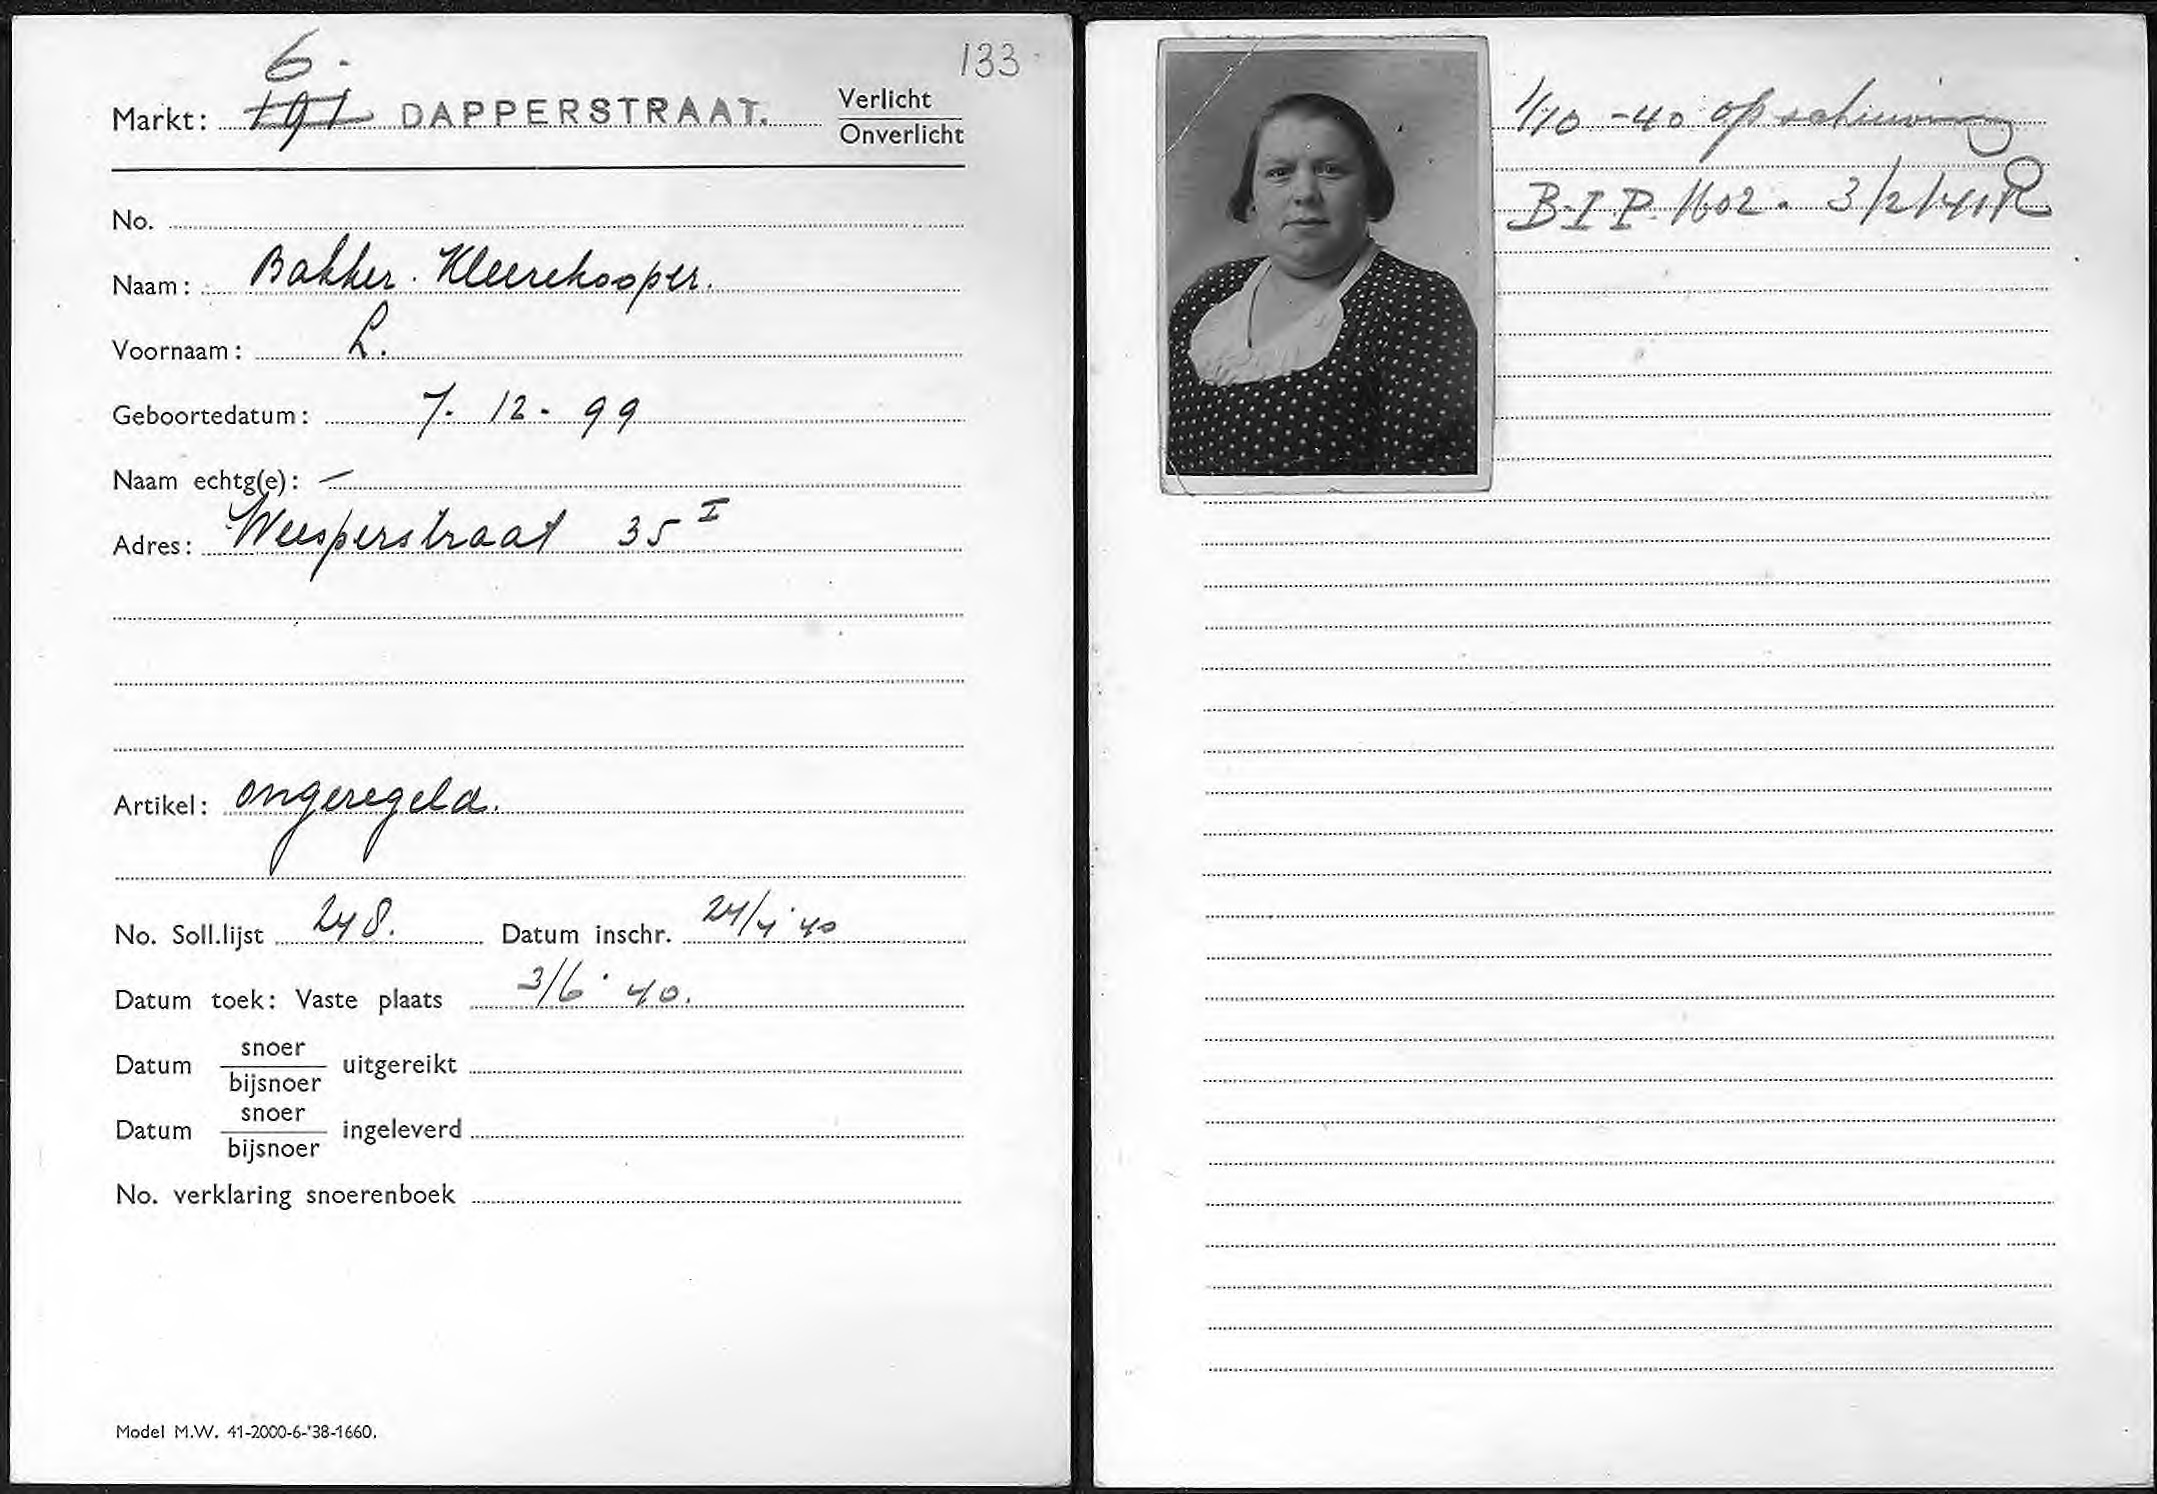 133
6.
Markt: 191 DAPPERSTRAAT. Verlicht
Onverlicht
No.
Naam: Bakker. Kleerekooper.
Voornaam: L.
Geboortedatum: 7. 12. 99
Naam echtg(e): –
Adres: Weesperstraat 35 I
Artikel: ongeregeld.
No. Soll.lijst 248. Datum inschr. 24/4 '40
Datum toek: Vaste plaats 3/6 '40.
Datum snoer uitgereikt
bijsnoer
Datum snoer ingeleverd
bijsnoer
No. verklaring snoerenboek
Model M.W. 41-2000-6-'38-1660.
1/10 -40 opschuiving
B.I.P. 1602. 3/2/41